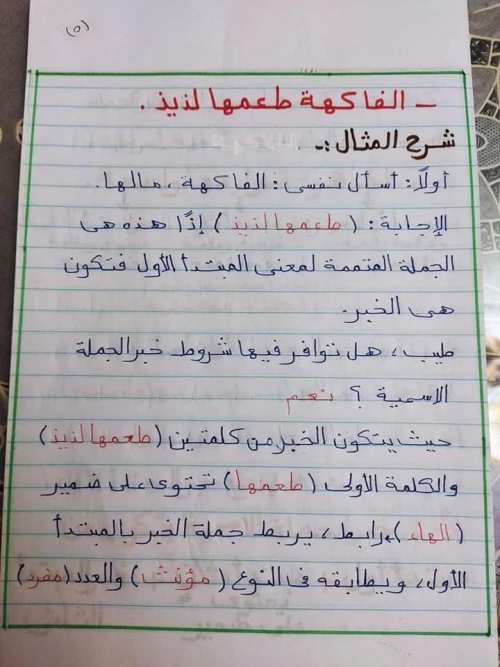 (٥)
- الفاكهة طعمها لذيذ .
شرح المثال :-
أولًا: أسأل نفسى : الفاكهة ، مالها.
الإجابة : ( طعمها لذيذ ) إذًا هذه هى
الجملة المتممة لمعنى المبتدأ الأول فتكون
هى الخبر.
طيب ، هل تتوافر فيها شروط خبر الجملة
الاسمية ؟ نعم
حيث يتكون الخبر من كلمتين ( طعمها لذيذ )
والكلمة الأولى ( طعمها ) تحتوى على ضمير
( الهاء ) رابط ، يربط جملة الخبر بالمبتدأ
الأول ، ويطابقه فى النوع ( مؤنث ) والعدد ( مفرد )